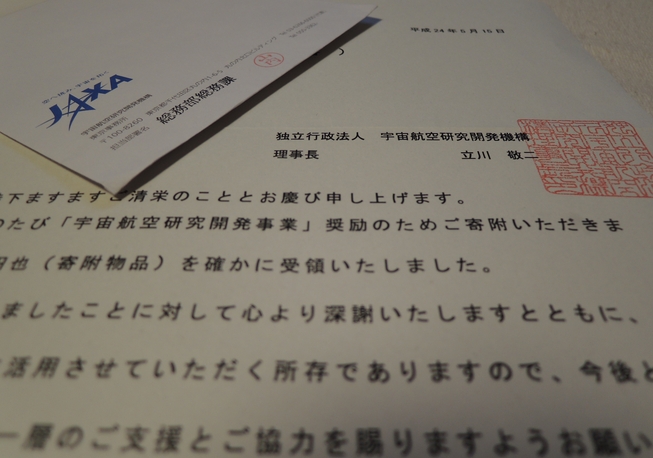 平成24年5月15日
JAXA
宇宙航空研究開発機構
東京事務所
〒100-8260 東京都千代田区丸の内1-6-5
担当部署名 総務部総務課
独立行政法人 宇宙航空研究開発機構
理事長 立川 敬二
下ますますご清栄のこととお慶び申し上げます。
のたび「宇宙航空研究開発事業」奨励のためご寄附いただきま
也（寄附物品）を確かに受領いたしました。
ましたことに対して心より深謝いたしますとともに、
活用させていただく所存でありますので、今後と
一層のご支援とご協力を賜りますようお願い